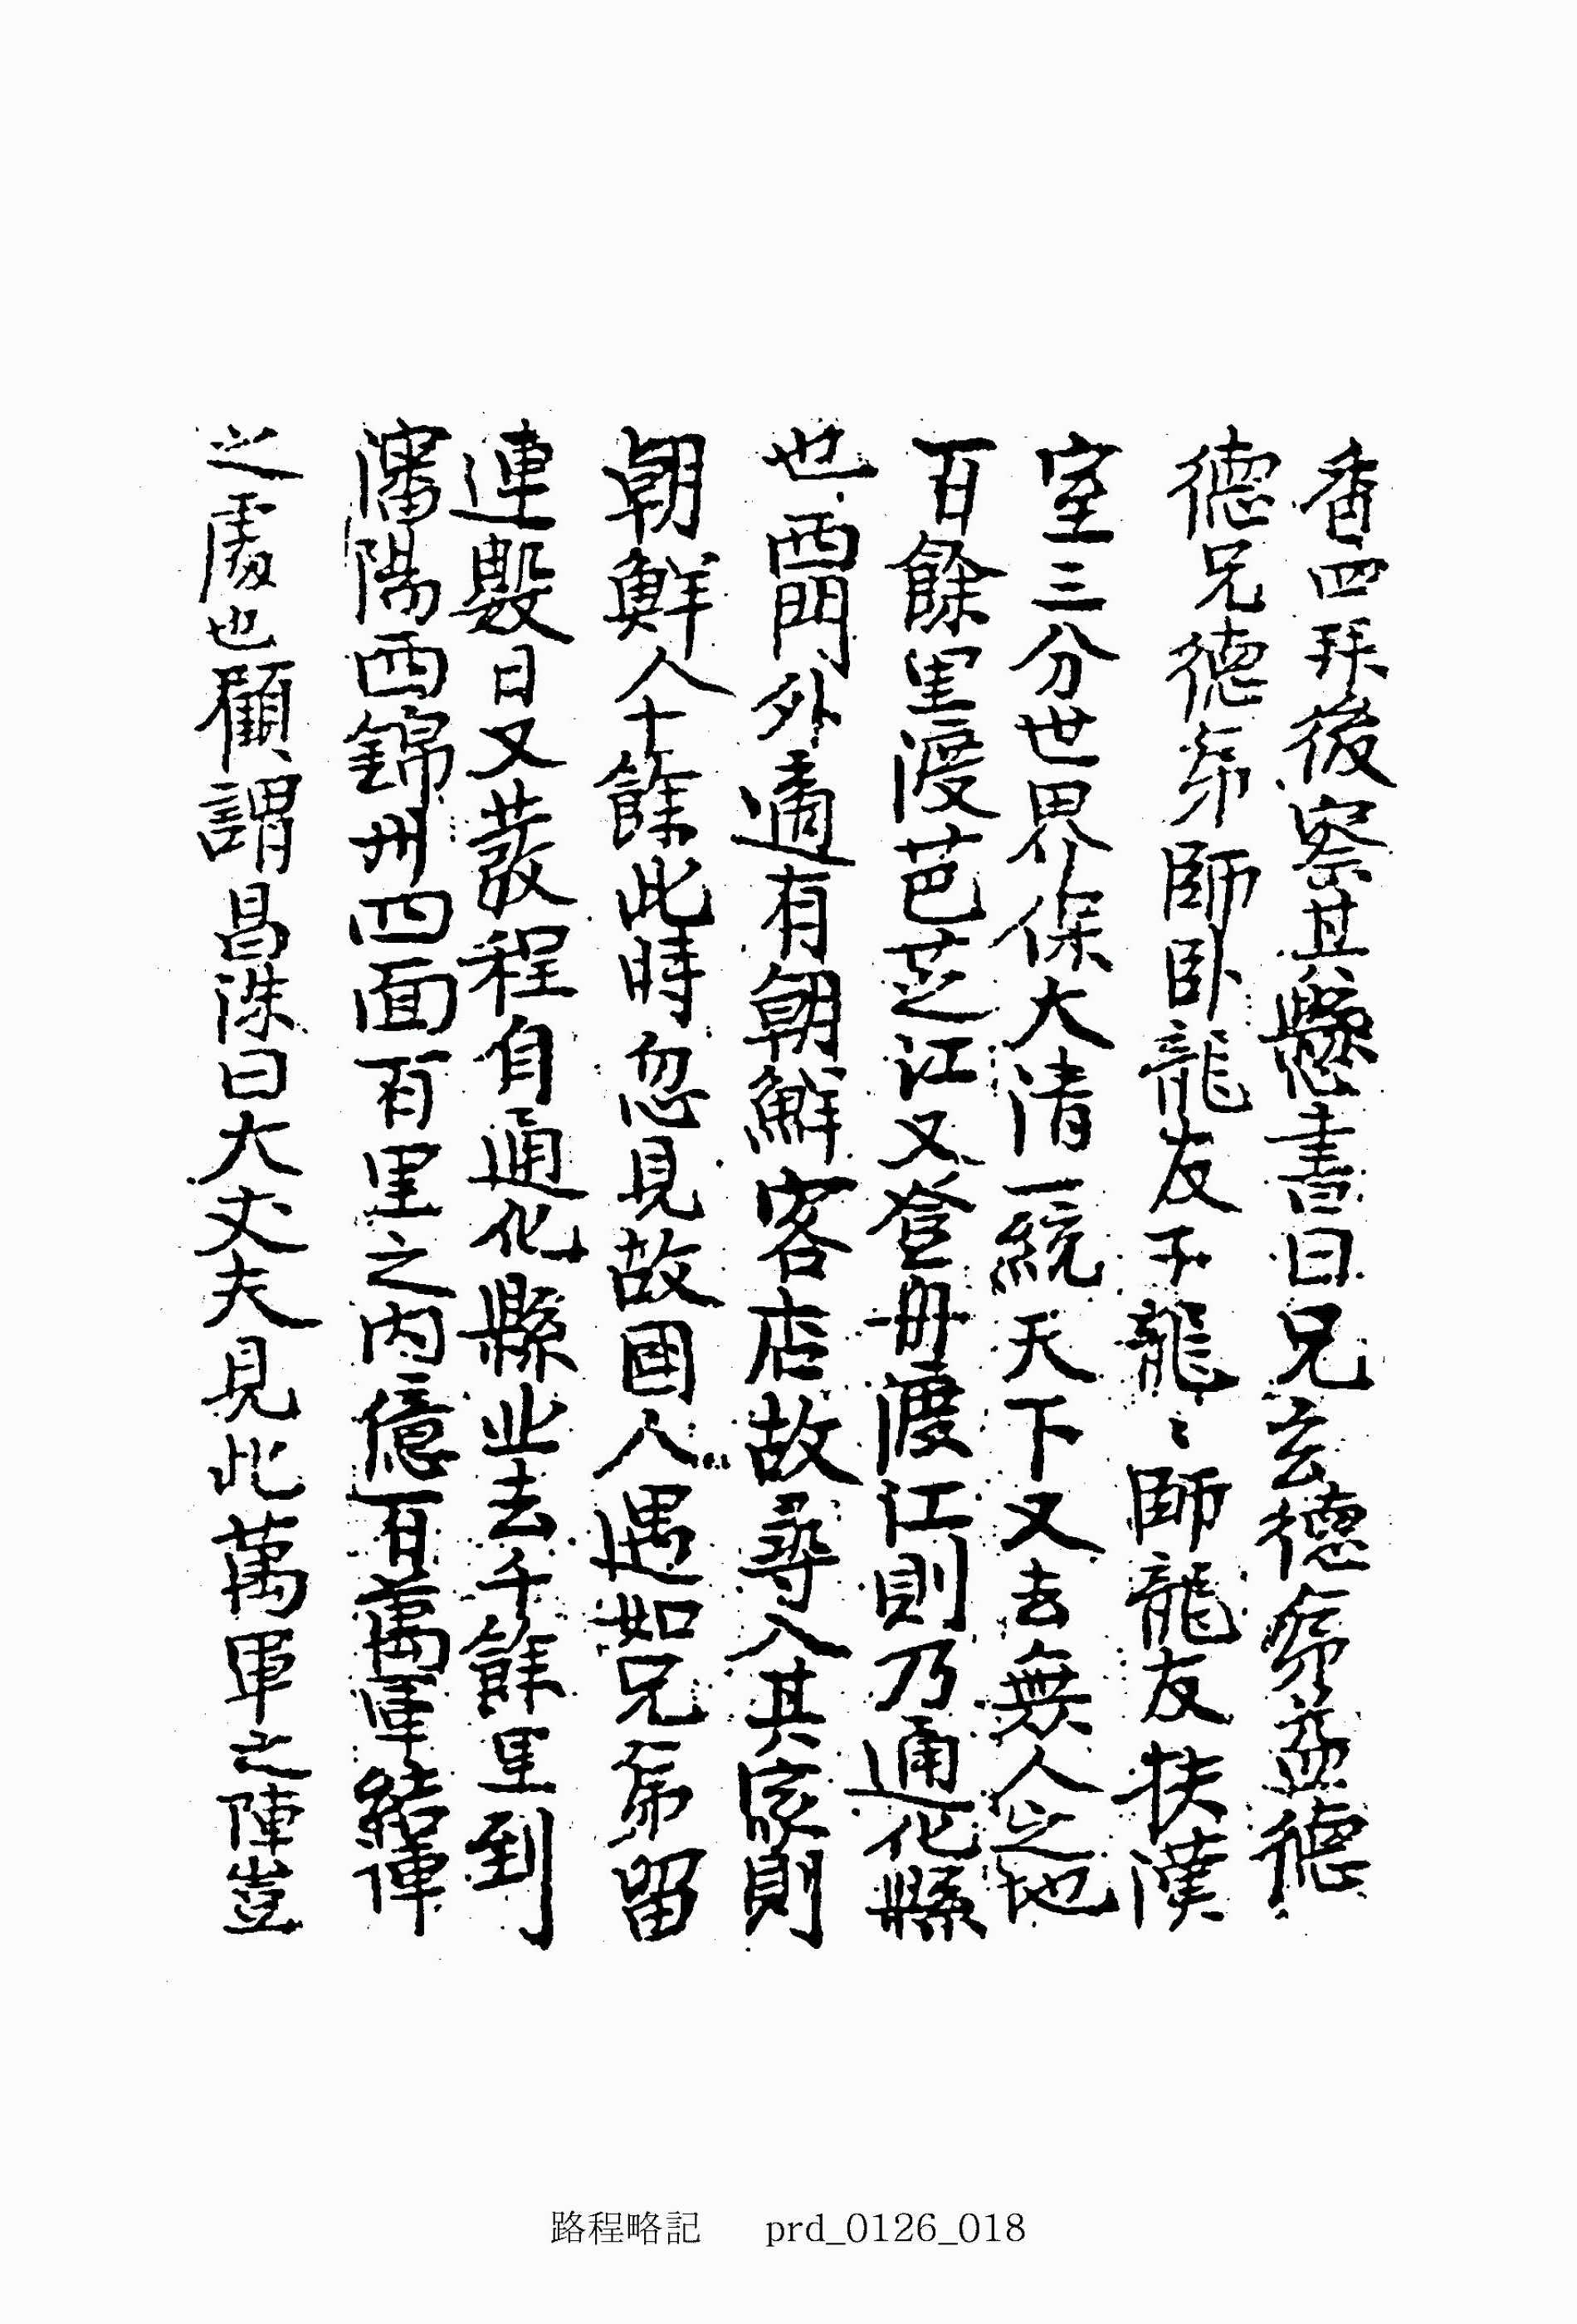 香四拜後察其懸書曰兄玄德弟益德
德兄德弟師臥龍友子龍〻師龍友扶漢
室三分世界保大清一統天下又去無人之地
百餘里渡芭芝江又登舟渡江則乃通化縣
也西門外適有朝鮮客店故尋入其家則
朝鮮人十餘此時忽見故國人遇如兄弟留
連數日又發程自通化縣北去千餘里到
瀋陽西錦州四面百里之內億百萬軍結陣
之處也顧謂昌洙曰大丈夫見此萬軍之陣豈
路程略記 prd_0126_018